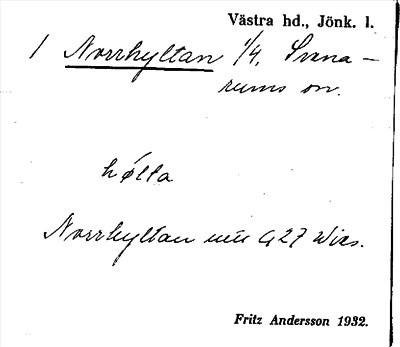 Västra hd., Jönk. l.
1 Norrhyltan 1/4, Svena-
rums sn.
hølta
Norrhyltan G 27 Wirs.
Fritz Andersson 1932.